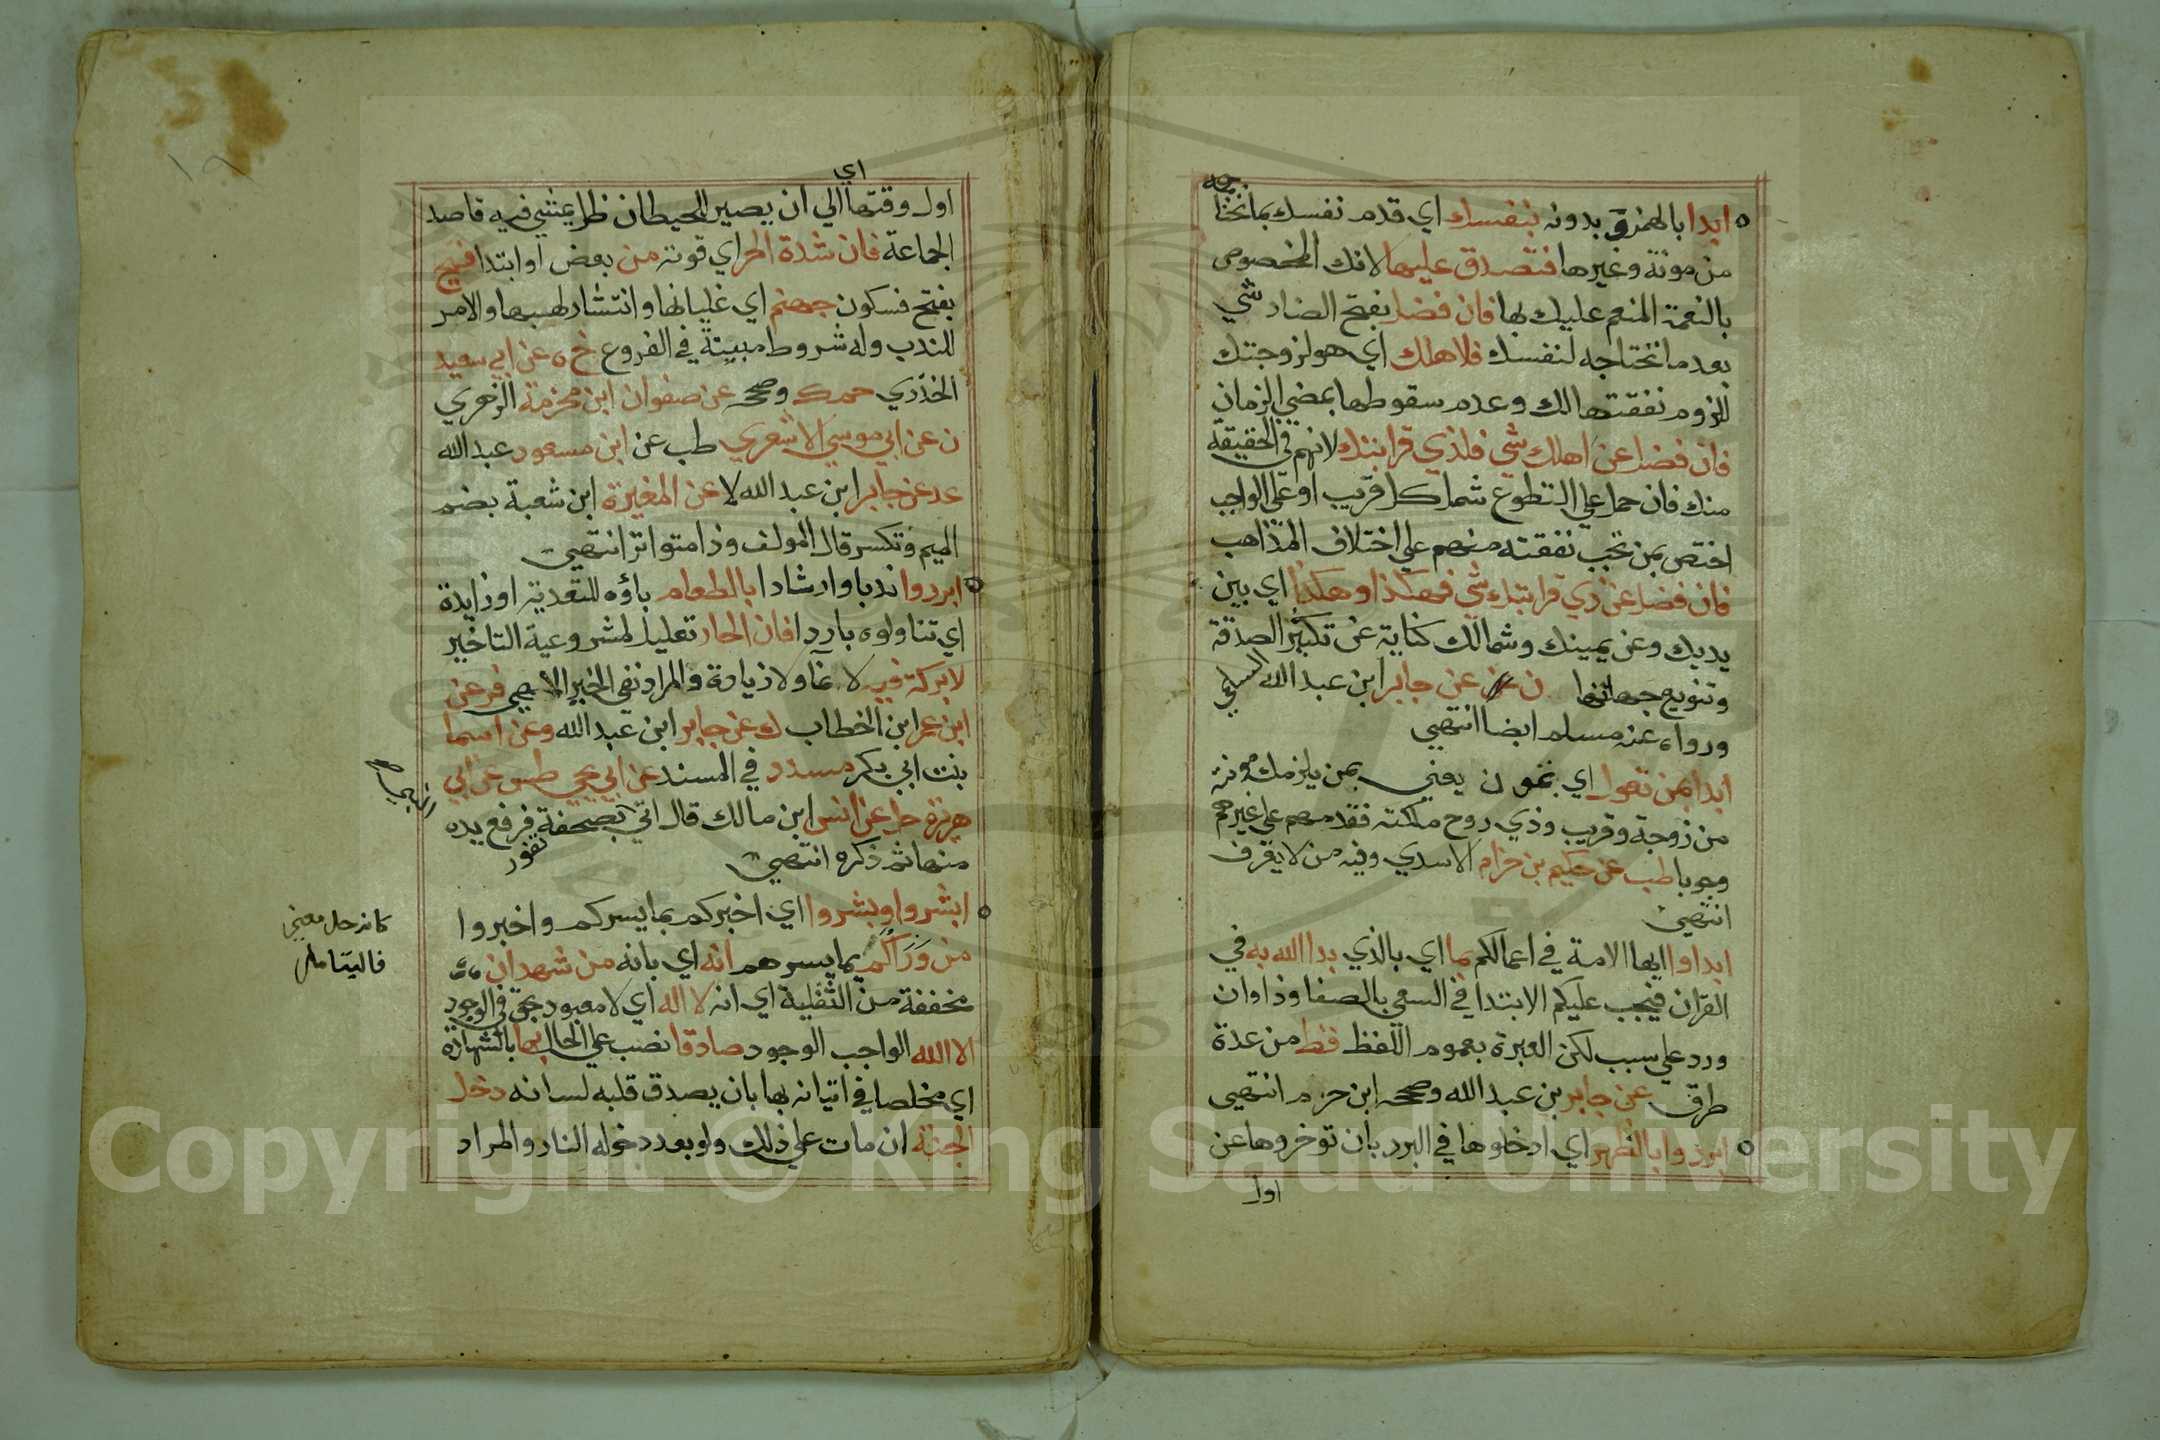 ابدا بالهمزة وبدونه بنفسك اي قدم نفسك بما تحتاجه
من مونة وغيرها فتصدق عليها لانك المخصوص
بالنعمة المنعم عليك بها فان فضل بفتح الضاد شي
بعد ما تحتاجه لنفسك فلاهلك اي هو لزوجتك
للزوم نفقتها لك وعدم سقوطها بمضي الزمان
فان فضل عن اهلك شي فلذي قرابتك لانهم في الحقيقة
منك فان حمل علي التطوع شمل كل قريب او علي الواجب
اختص بمن تجب نفقته منهم علي اختلاف المذاهب
فان فضل عن ذي قرابتك شي فهكذا وهكذا اي بين
يديك وعن يمينك وشمالك كناية عن تكثير الصدقة
وتنويع جهاتها ن عن جابر ابن عبد الله السلمي
ورواه عنه مسلم ايضا انتهي
ابدا بمن تعول اي تمون يعني بمن يلزمك مونته
من زوجة وقريب وذي روح ملكته فقدمهم علي غيرهم
وجوبا طب عن حكيم بن حزام الاسدي وفيه من لا يعرف
انتهي
ابداوا ايها الامة في اعمالكم بما اي بالذي بدا الله به في
القران فيجب عليكم الابتدا في السعي بالصفا وذا وان
ورد علي سبب لكن العبرة بعموم اللفظ قط من عدة
طرق عن جابر بن عبد الله وصححه ابن حزم انتهي
ابردوا بالظهر اي ادخلوها في البرد بان توخروها عن
اول
اول وقتها الي ان يصير للحيطان ظل يمشي فيه قاصد
اي
الجماعة فان شدة الحر اي قوته من بعض او ابتدا فيح
بفتح فسكون جهنم اي غليانها وانتشار لهبها والامر
للندب وله شروط مبينة في الفروع خ ه عن ابي سعيد
الخدري حم ك وصححه عن صفوان ابن مخرمة الزهري
ن عن ابي موسي الاشعري طب عن ابن مسعود عبد الله
عد عن جابر ابن عبد الله لا عن المغيرة ابن شعبة بضم
الميم وتكسر قال المولف وذا متواتر انتهي
ابردوا ندبا وارشادا بالطعام باؤه للتعدية او زايدة
اي تناولوه باردا فان الحار تعليل لمشروعية التاخير
لا بركة فيه لا نما ولا زيادة والمراد نفي الخير الالهي فر عن
ابن عمر ابن الخطاب ك عن جابر ابن عبد الله وعن اسما
بنت ابي بكر مسدد في المسند عن ابي يحيي طس عن ابي
هريرة حل عن انس ابن مالك قال اتي بصحفة تفور فرفع يده
منها ثم ذكره انتهي
ابشروا وبشروا اي اخبركم بما يسركم واخبروا
من وراكم بما يسرهم انه اي بانه من شهد ان
مخففة من الثقيلة اي انه لا اله اي لا معبود بحق في الوجود
الا الله الواجب الوجود صادقا نصب علي الحال بها بالشهادة
اي مخلصا في اتيانه بها بان يصدق قلبه لسانه دخل
الجنة ان مات علي ذلك ولو بعد دخوله النار والمراد
كانه حل معني
فاليتامل
Copyright © King Saud University